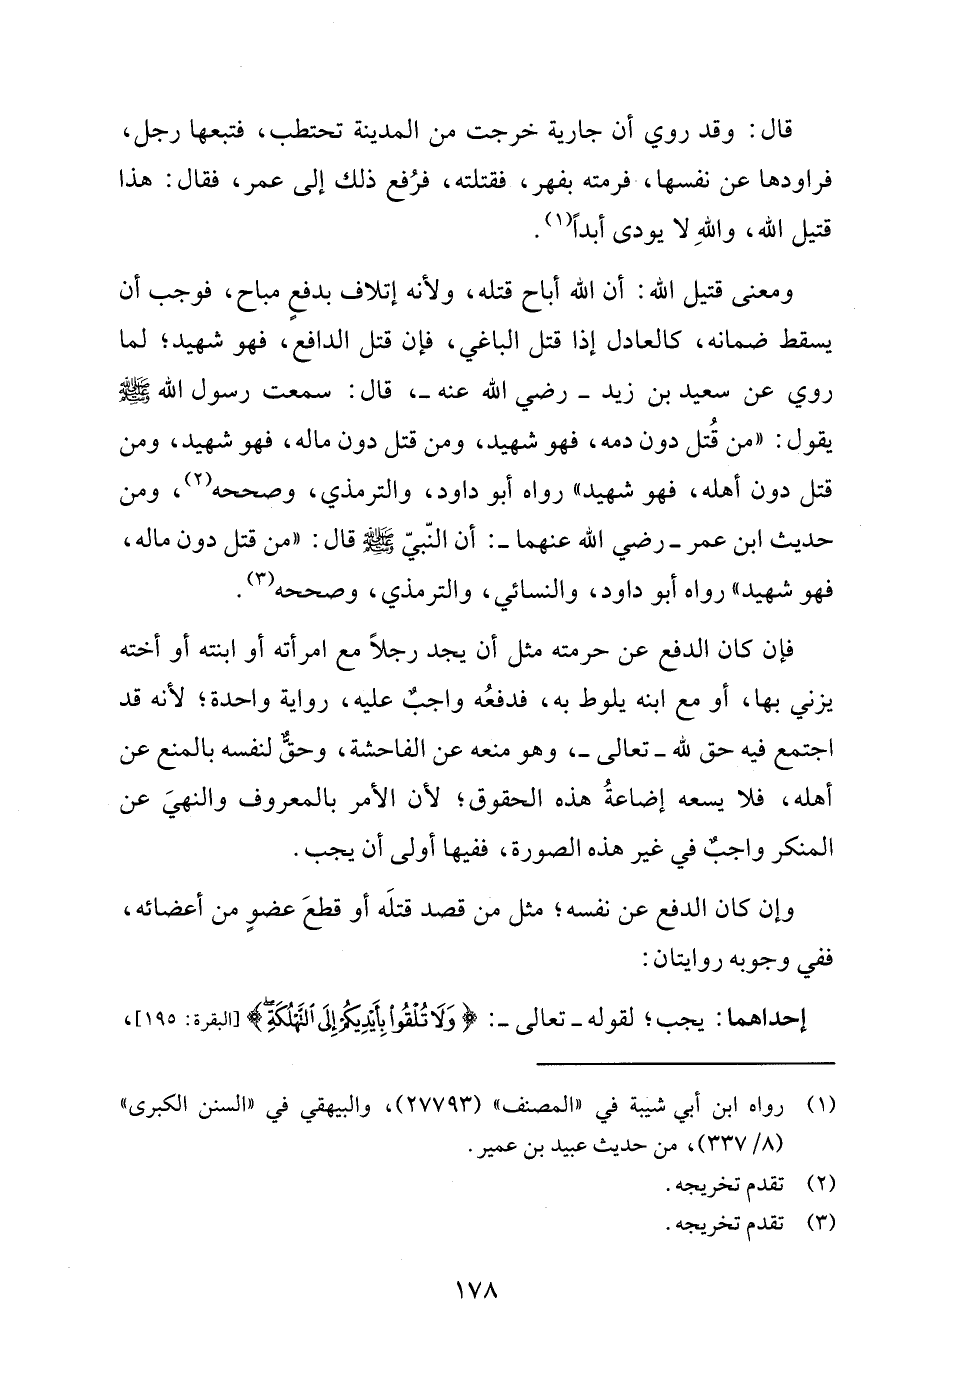 قال: وقد روي أن جارية خرجت من المدينة تحتطب، فتبعها رجل،
فراودها عن نفسها، فرمته بفهر، فقتلته، فرُفع ذلك إلى عمر، فقال: هذا
قتيل الله، واللهِ لا يودى أبداً(١).
ومعنى قتيل الله: أن الله أباح قتله، ولأنه إتلاف بدفعٍ مباح، فوجب أن
يسقط ضمانه، كالعادل إذا قتل الباغي، فإن قتل الدافع، فهو شهيد؛ لما
روي عن سعيد بن زيد ـ رضي الله عنه ـ، قال: سمعت رسول الله ﷺ
يقول: «من قُتل دون دمه، فهو شهيد، ومن قتل دون ماله، فهو شهيد، ومن
قتل دون أهله، فهو شهيد» رواه أبو داود، والترمذي، وصححه(٢)، ومن
حديث ابن عمر ـ رضي الله عنهما ـ: أن النّبيّ ﷺ قال: «من قتل دون ماله،
فهو شهيد» رواه أبو داود، والنسائي، والترمذي، وصححه(٣).
فإن كان الدفع عن حرمته مثل أن يجد رجلاً مع امرأته أو ابنته أو أخته
يزني بها، أو مع ابنه يلوط به، فدفعُه واجبٌ عليه، رواية واحدة؛ لأنه قد
اجتمع فيه حق لله ـ تعالى ـ، وهو منعه عن الفاحشة، وحقٌّ لنفسه بالمنع عن
أهله، فلا يسعه إضاعةُ هذه الحقوق؛ لأن الأمر بالمعروف والنهيَ عن
المنكر واجبٌ في غير هذه الصورة، ففيها أولى أن يجب.
وإن كان الدفع عن نفسه؛ مثل من قصد قتلَه أو قطعَ عضوٍ من أعضائه،
ففي وجوبه روايتان:
إحداهما: يجب؛ لقوله ـ تعالى ـ: ﴿وَلَا تُلْقُوا۟ بِأَيْدِيكُمْ إِلَى ٱلتَّهْلُكَةِۖ﴾ [البقرة: ١٩٥]،
(١) رواه ابن أبي شيبة في «المصنف» (٢٧٧٩٣)، والبيهقي في «السنن الكبرى»
(٨/ ٣٣٧)، من حديث عبيد بن عمير.
(٢) تقدم تخريجه.
(٣) تقدم تخريجه.
١٧٨